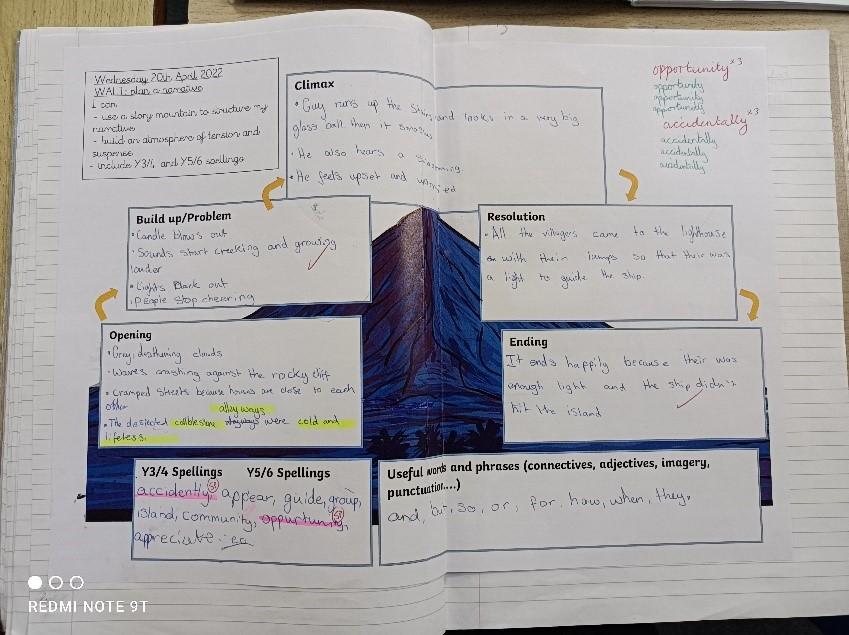 Wednesday 20th April 2022
WALT: plan a narrative
I can:
- use a story mountain to structure my
narrative
- build an atmosphere of tension and
suspense
- include Y3/4 and Y5/6 spellings
Climax
• Guy runs up the stairs and looks in a very big
glass ball then it smashes
• He also hears a
• He feels upset and worried
opportunity x3
opportunity
opportunity
opportunity
accidentally x3
accidentally
accidentally
accidentally
Build up/Problem
• Candle blows out
• Sounds start creeking and growing
louder
• Lights Black out
• People stop cheering
Resolution
• All the villagers came to the lighthouse
with their lamps so that their was
a light to guide the ship.
Opening
• Gray, clouds
• Waves crashing against the rocky cliff
• Cramped streets because houses are close to each
other
alleyways
• The deserted cobblestone were cold and
lifeless.
Ending
It ends happily because their was
enough light and the ship didn't
hit the island
Y3/4 Spellings Y5/6 Spellings
accidently, sp appear, guide, group,
island, community, oppurtunity, sp
appreciate
Useful words and phrases (connectives, adjectives, imagery,
punctuation....)
and, but, so, or, for, how, when, they,
REDMI NOTE 9T